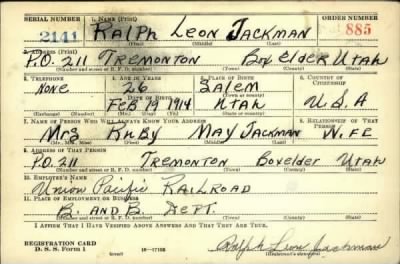 SERIAL NUMBER 1. NAME (Print) ORDER NUMBER
2141 RALPH LEON JACKMAN 885
(First) (Middle) (Last)
2. ADDRESS (Print)
P.O. 211 TREMONTON BOX ELDER UTAH
(Number and street or R. F. D. number) (Town) (County) (State)
3. TELEPHONE 4. AGE IN YEARS 5. PLACE OF BIRTH 6. COUNTRY OF CITIZENSHIP
NONE 26 SALEM
DATE OF BIRTH (Town or county)
FEB 19 1914 UTAH U.S.A
(Exchange) (Number) (Mo.) (Day) (Yr.) (State or country)
7. NAME OF PERSON WHO WILL ALWAYS KNOW YOUR ADDRESS 8. RELATIONSHIP OF THAT PERSON
MRS RUBY MAY JACKMAN WIFE
(Mr., Mrs., Miss) (First) (Middle) (Last)
9. ADDRESS OF THAT PERSON
P.O. 211 TREMONTON BOXELDER UTAH
(Number and street or R. F. D. number) (Town) (County) (State)
10. EMPLOYER'S NAME
Union Pacific RAILROAD
11. PLACE OF EMPLOYMENT OR BUSINESS
B. AND B. DEPT.
(Number and street or R. F. D. number) (Town) (County) (State)
I AFFIRM THAT I HAVE VERIFIED ABOVE ANSWERS AND THAT THEY ARE TRUE.
REGISTRATION CARD
D. S. S. Form 1 16-17105 Ralph Leon Jackman
(Registrant's signature)